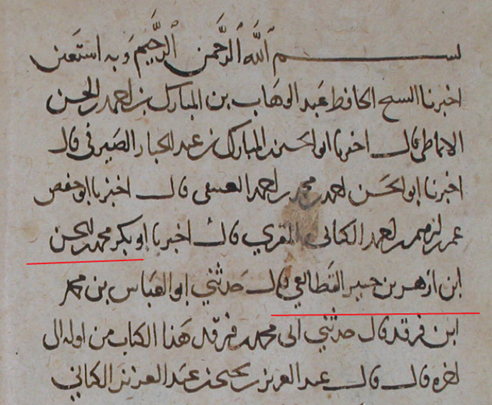 بسم الله الرحمن الرحيم وبه استعين
اخبرنا الشيخ الحافظ عبد الوهاب بن المبارك بن احمد بن الحسن
الانماطي قال اخبرنا ابو الحسين المبارك بن عبد الجبار الصيرفي قال
اخبرنا ابو الحسن احمد بن محمد بن احمد العتيقي قال اخبرنا ابو حفص
عمر بن ابرهيم بن احمد الكتاني المقري قال اخبرنا ابو بكر محمد بن الحسن
ابن ازهر بن جبير القطايعي قال حدثني ابو العباس بن محمد
ابن فرقد قال حدثني ابي محمد بن فرقد هذا الكتاب من اوله الى
اخره قال قال عبد العزيز بن يحيى بن عبد العزيز الكناني